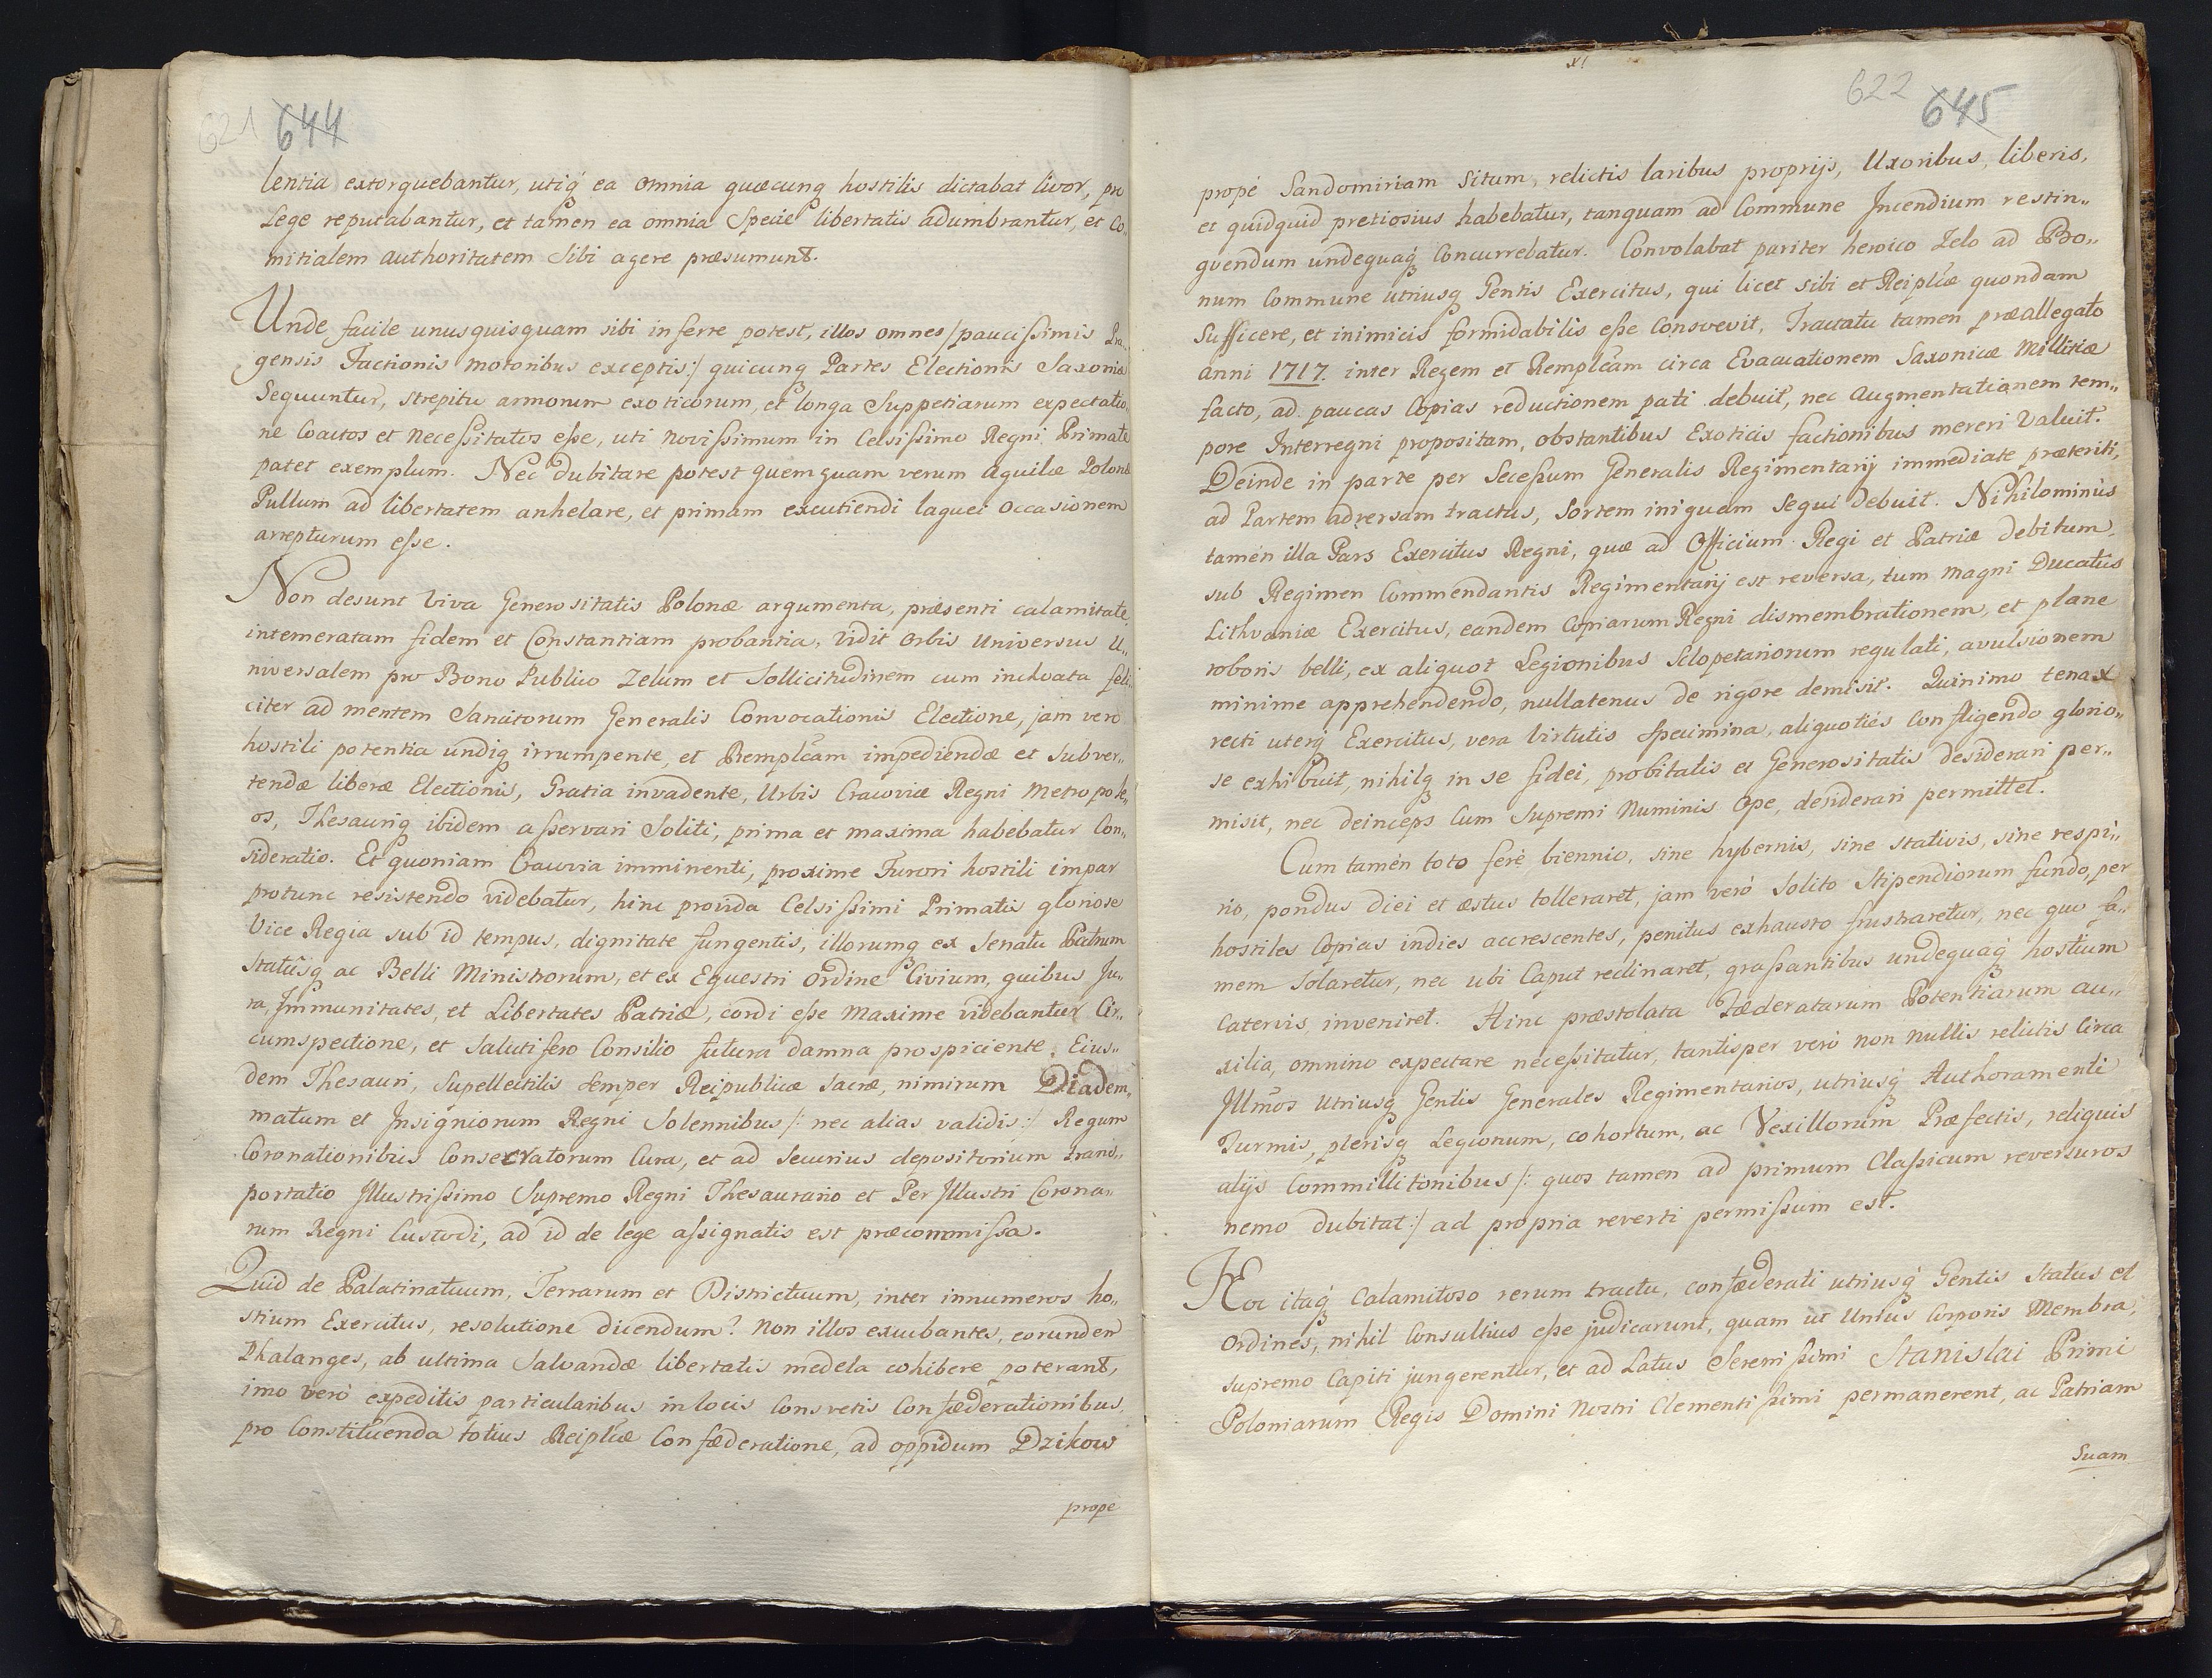 621 644
lentia extorquebantur, utiq́ ea omnia quæcunq hostilis dictabat livor, pro
Lege reputabantur, et tamen ea omnia Specie libertatis adumbrantur, et Co„
mitialem authoritatem Sibi agere præsumunt.
Unde facile unusquisquam sibi inferre potest, illos omnes /paucissimis Pra„
gensis Factionis motoribus exceptis:/ quicunq Partes Electionis Saxoniæ
Sequuntur, strepitu armorum exoticorum, et longa Suppetiarum expectatio„
ne Coactos et necessitatos esse, uti novissimum in Celsissimo Regni Primate
patet exemplum. Nec dubitare potest quemquam verum aquilæ Polonæ
Pullum ad libertatem anhelare, et primam excutiendi laquei occasionem
arrepturum esse.
Non desunt viva Generositatis Polonæ argumenta, præsenti calamitate,
intemeratam fidem et Constantiam probantia, vidit orbis universus u„
niversalem pro Bono Publico zelum et Sollicitudinem cum inchoata feli„
citer ad mentem Sancitorum Generalis Convocationis Electione, jam vero
hostili potentia undiq irrumpente, et Rempl̃cam impediendæ et subver„
tendæ liberæ Electionis, Gratia invadente, Urbis Cracoviæ Regni Metropole„
os, Thesauriq ibidem asservari Soliti, prima et maxima habebatur Con„
sideratio. Et quoniam Cracovia imminenti, proxime Furori hostili impar
protunc resistendo videbatur, hinc provida Celsissimi Primatis gloriose
Vice Regia sub id tempus, dignitate fungentis, illorumq ex Senatu Patrum
Statûsq ac Belli Ministrorum, et ex Equestri ordine Civium, quibus Ju„
ra, Immunitates, et Libertates Patriæ, cordi esse maxime videbantur Cir„
cumspectione, et Salutifero Consilio futura damna prospiciente, Eius„
dem Thesauri, Supellectilis semper Reipublicæ Sacræ, nimirum Diadem„
matum et Insigniorum Regni Solennibus /: nec alias validis:/ Regum
Coronationibus Conservatorum Cura, et ad Securius depositorium trans„
portatio Illustrissimo Supremo Regni Thesaurario et Per Illustri Corona„
rum Regni Custodi, ad id de lege assignatis est præcommissa.
Quid de Palatinatuum, Terrarum et Districtuum, inter innumeros ho„
stium Exercitus, resolutione dicendum? Non illos excubantes, eorundem
Phalanges, ab ultima Salvandæ libertatis medela cohibere poterant,
imo verò expeditis particularibus in locis Consvetis Confæderationibus,
pro Constituenda totius Reipl̃cæ Confæderatione, ad oppidum Dzikow
prope
622 645
propè Sandomiriam Situm, relictis laribus proprijs, Uxoribus, liberis,
et quidquid pretiosius habebatur, tanquam ad Commune Incendium restin„
guendum undequaq́ Concurrebatur. Convolabat pariter heroico Zelo ad Bo„
num Commune utriusq Gentis Exercitus, qui licet sibi et Reipl̃cæ quondam
Sufficere, et inimicis formidabilis esse Consvevit, Tractatu tamen præallegato
anni 1717. inter Regem et Rempl̃cam circa Evacuationem Saxonicæ Millitiæ
facto, ad paucas Copias reductionem pati debuit, nec augmentationem tem„
pore Interregni propositam, obstantibus Exoticis factionibus mereri valuit.
Deinde in parte per Secessum Generalis Regimentarij immediate præteriti,
ad Partem adversam tractus, Sortem iniquam Sequi debuit. Nihilominùs
tamèn illa Pars Exercitus Regni, quæ ad Officium Regi et Patriæ debitum,
sub Regimen Commendantis Regimentarij est reversa, tum Magni Ducatûs
Lithvaniæ Exercitus, eandem Copiarum Regni dismembrationem, et plane
roboris belli, ex aliquot Legionibus Sclopetariorum regulati, avulsionem
minime apprehendendo, nullatenus de rigore demisit. Quinimo tenax
recti uterq́ Exercitus, vera Virtutis Specimina, aliquotiès Confligendo glorio„
se exhibuit, nihilq in se fidei, probitatis et Generositatis desiderari per„
misit, nec deinceps Cum Supremi Numinis Ope, desiderari permittet.
Cum tamèn toto ferè biennio, sine hybernis, sine stativis, sine respi„
rio, pondus diei et æstus tolleraret, jam verò Solito Stipendiorum fundo, per
hostiles Copias indies accrescentes, penitus exhausto frustraretur, nec quo fa„
mem Solaretur, nec ubi Caput reclinaret, grassantibus undequaq́ hostium
Catervis, inveniret. Hinc præstolata Fæderatarum Potentiarum au„
xilia, omnino expectare necessitatur, tantisper verò non nullis relictis Circa
Illm̃os utriusq Gentis Generales Regimentarios, utriusq́ Authoramenti
Turmis, plerisq Legionum, cohortum, ac Vexillorum Præfectis, reliquis
alijs Commillitonibus /: quos tamen ad primum Classicum reversuros
nemo dubitat:/ ad propria reverti permissum est.
Hoc itaq́ Calamitoso rerum tractu, confæderati utriusq́ Gentis Status et
Ordines, nihil Consultius esse judicarunt, quam ut Unius Corporis Membra,
supremo Capiti jungerentur, et ad Latus Serenissimi Stanislai Primi
Poloniarum Regis Domini Nostri Clementissimi permanerent, ac Patriam
Suam